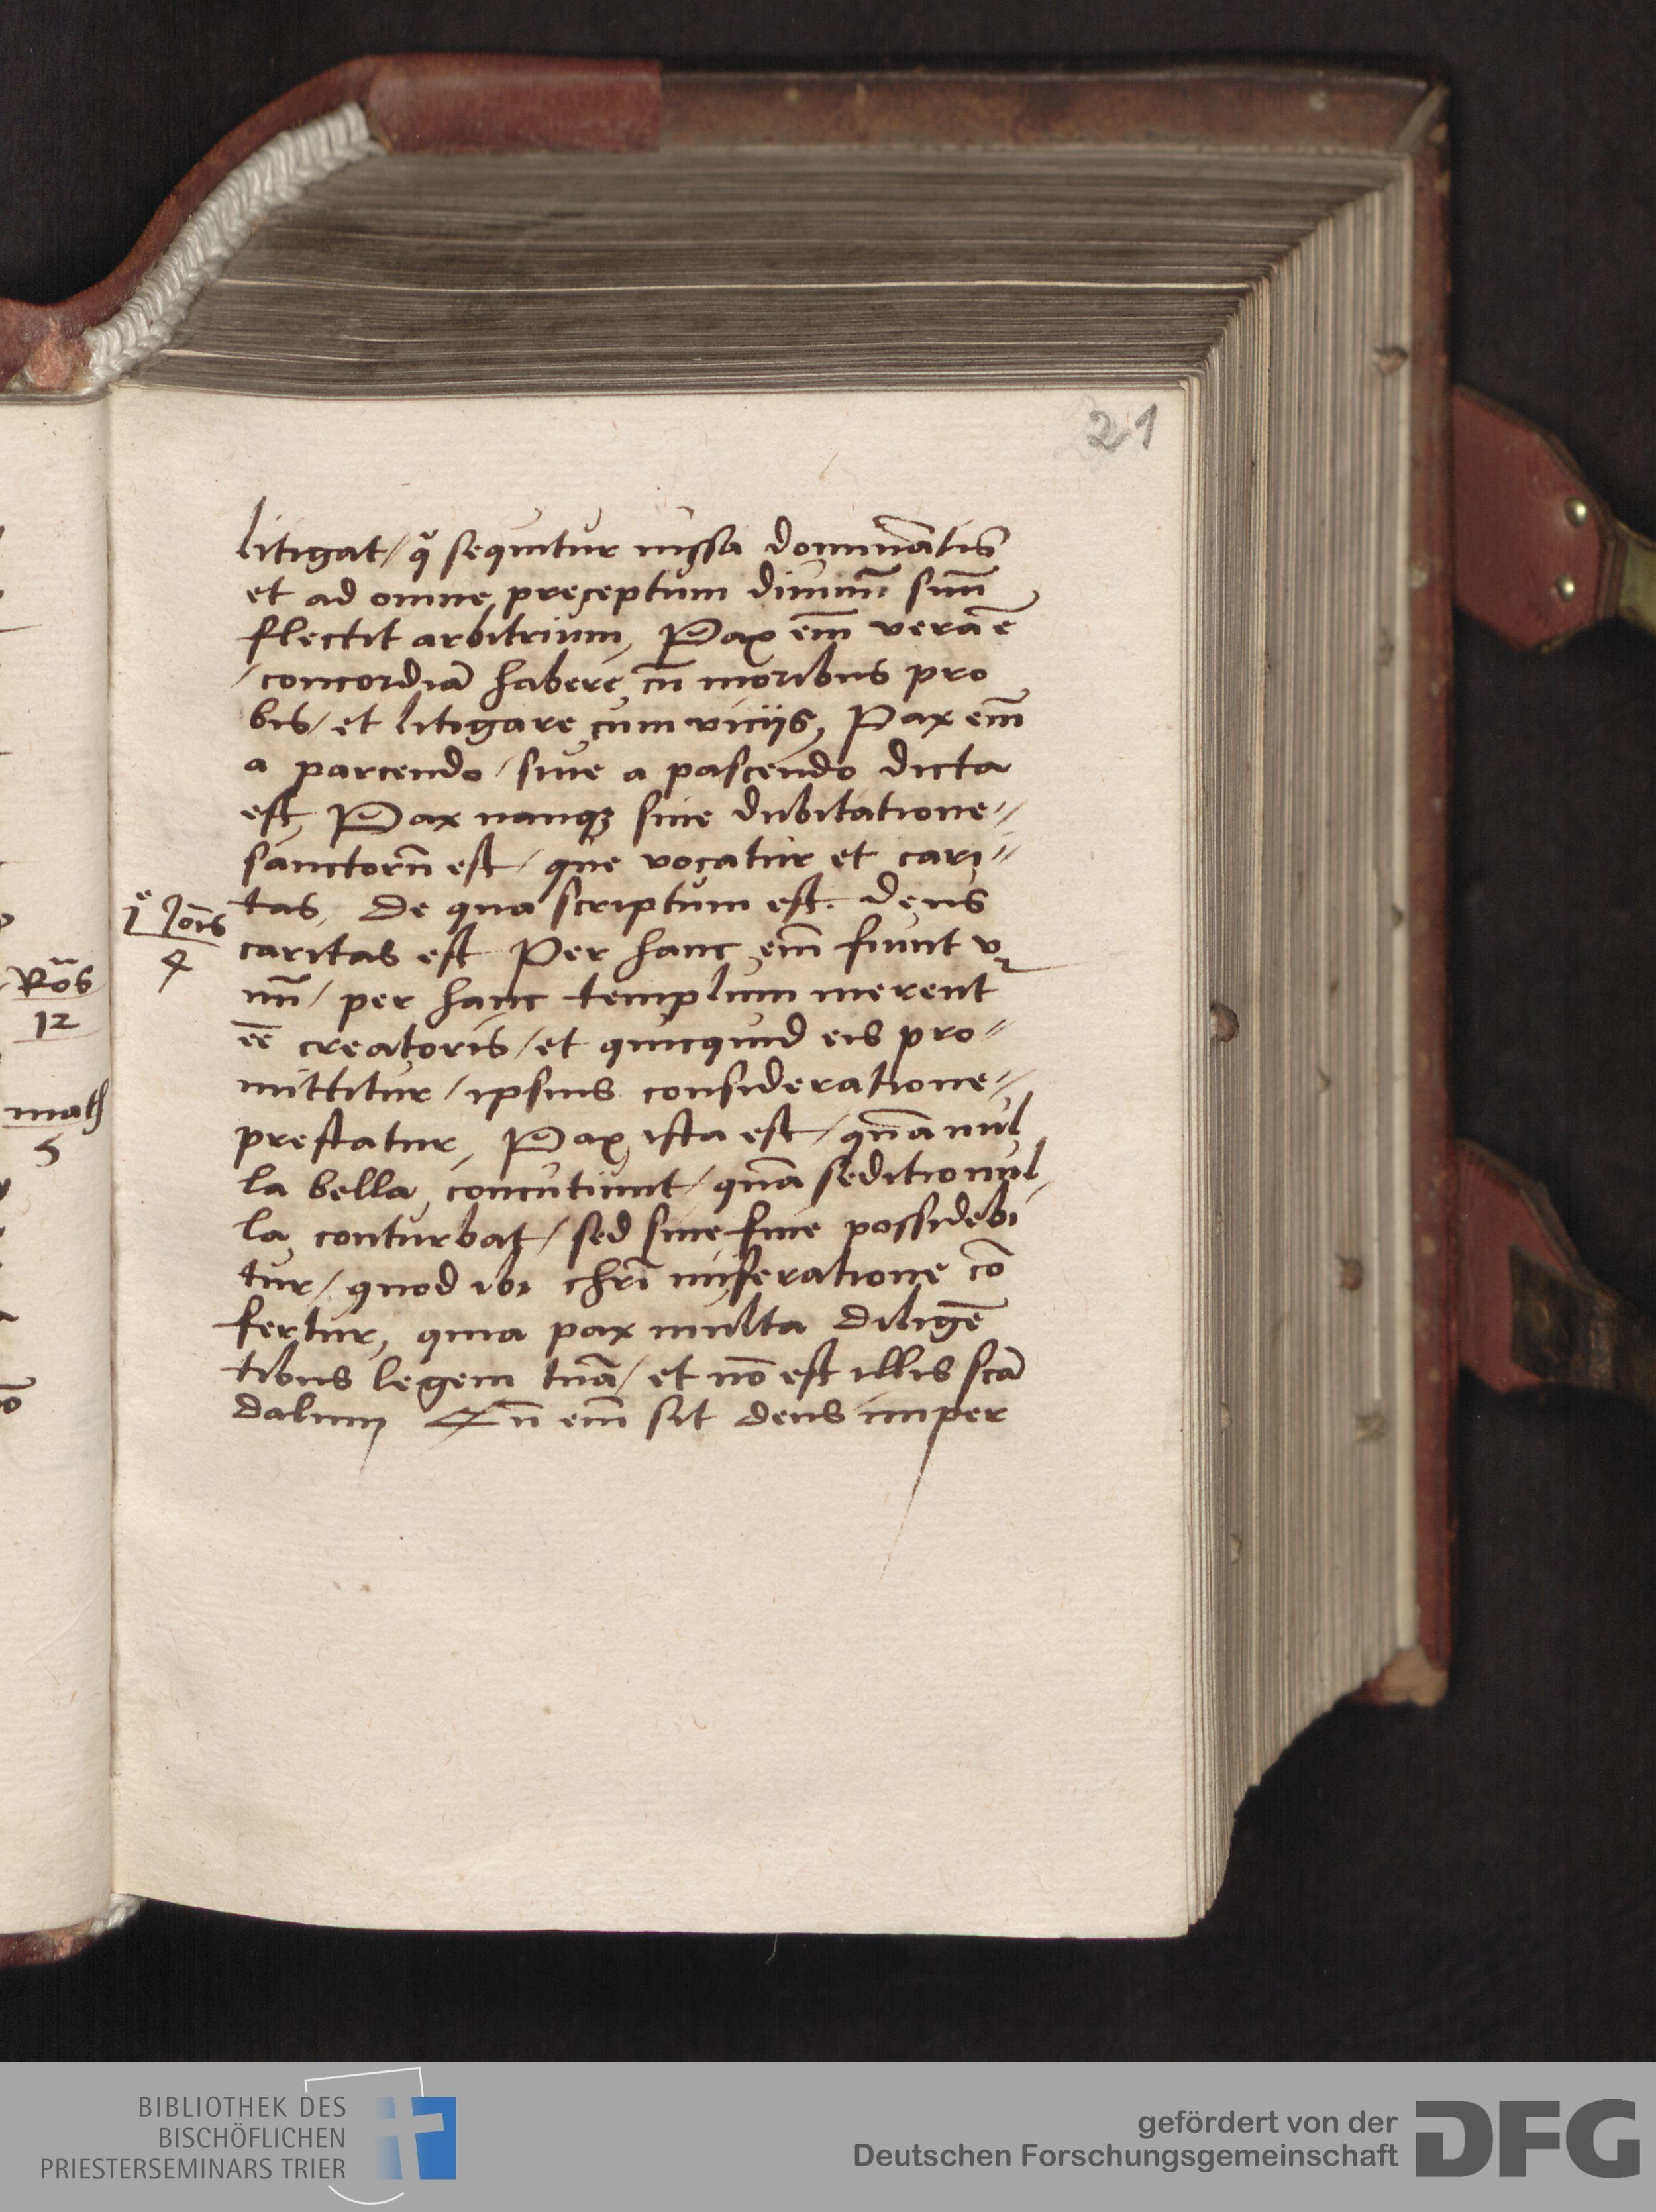 21
litigat / q̃ sequitur iussa dominātis
et ad omne preceptum diuinū suū
flectit arbitrium, Pax em̄ vera ē
/ concordiā habere cū moribus pro
bis / et litigare cum viciis, Pax em̄
a parcendo / siue a pascendo dicta
est, Pax nanq₃ sine dubitatione //
sanctorū est / que vocatur et cari //
tas, de qua scriptum est. deus
caritas est Per hanc em̄ fiunt v
nū / per hanc templum merent
eē creatoris / et quicquid eis pro //
mittitur / ipsius consideratione //
prestatur, Pax ista est / quā nul
la bella concutiunt / quā seditio nul
la conturbat / sed sine fine possidebi
tur / quod ibi chrī miseratione cō
fertur, quia pax multa diligē
tibus legem tuā / et nō est illis scā
dalum Cū em̄ sit deus imper
1ᵉ Ioīs
4
Rōs
12
math
5
BIBLIOTHEK DES
BISCHÖFLICHEN
PRIESTERSEMINARS TRIER
gefördert von der
Deutschen Forschungsgemeinschaft
DFG